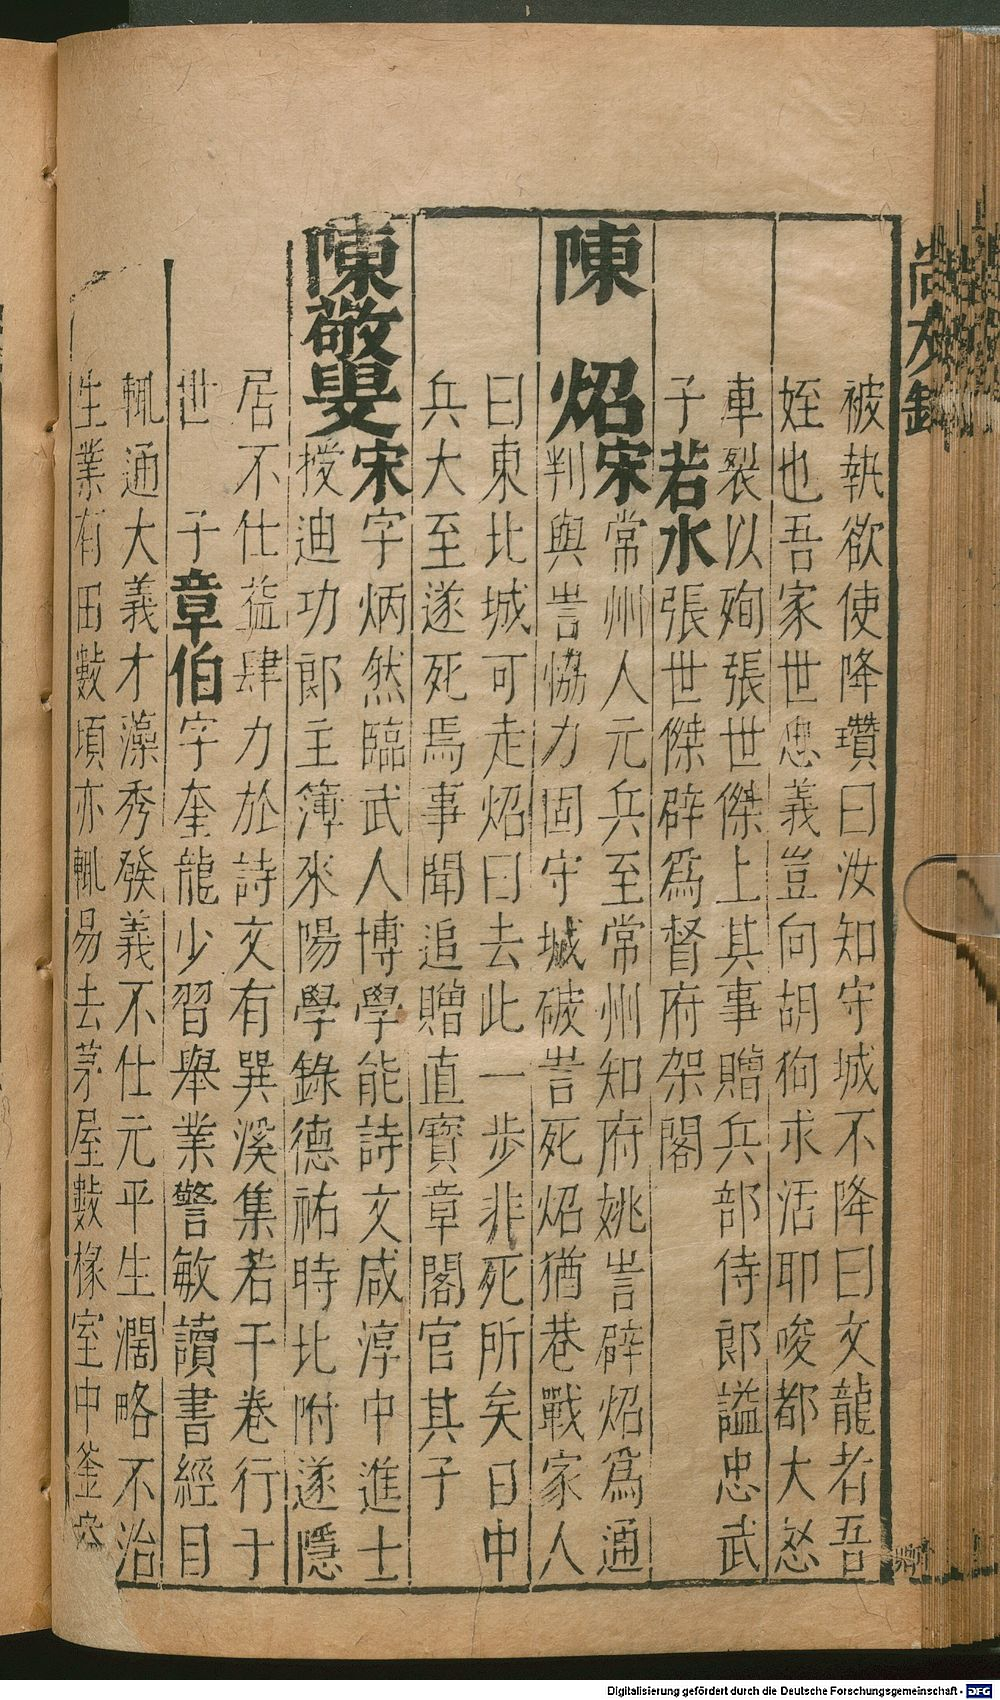 尚友錄
被執欲使降瓚曰汝知守城不降曰文龍者吾
姪也吾家世忠義豈向胡狗求活耶唆都大怒
車裂以殉張世傑上其事贈兵部侍郎謚忠武
子若水張世傑辟爲督府架閣
陳炤宋常州人元兵至常州知府姚訔辟炤爲通
判與訔恊力固守城破訔死炤猶巷戰家人
曰東北城可走炤曰去此一步非死所矣日中
兵大至遂死焉事聞追贈直寳章閣官其子
陳敬叟宋字炳然臨武人博學能詩文咸淳中進士
授迪功郎主簿來陽學錄德祐時北附遂隱
居不仕益肆力於詩文有巽溪集若干卷行于
世 子章伯字奎龍少習舉業警敏讀書經目
輒通大義才藻秀發義不仕元平生濶略不治
生業有田數頃亦輒易去茅屋數椽室中釜
Digitalisierung gefördert durch die Deutsche Forschungsgemeinschaft - DFG